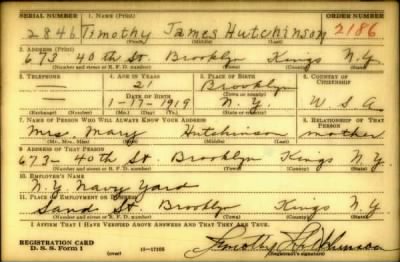 SERIAL NUMBER 1. NAME (Print) ORDER NUMBER
2846 Timothy James Hutchinson 2186
(First) (Middle) (Last)
2. ADDRESS (Print)
673 40th St. Brooklyn Kings N.Y.
(Number and street or R. F. D. number) (Town) (County) (State)
3. TELEPHONE 4. AGE IN YEARS 5. PLACE OF BIRTH 6. COUNTRY OF CITIZENSHIP
— 21 Brooklyn
DATE OF BIRTH (Town or county)
— 1-17-1919 N.Y. U.S.A.
(Exchange) (Number) (Mo.) (Day) (Yr.) (State or country)
7. NAME OF PERSON WHO WILL ALWAYS KNOW YOUR ADDRESS 8. RELATIONSHIP OF THAT PERSON
Mrs. Mary Hutchinson mother
(Mr., Mrs., Miss) (First) (Middle) (Last)
9. ADDRESS OF THAT PERSON
673- 40th St. Brooklyn Kings N.Y.
(Number and street or R. F. D. number) (Town) (County) (State)
10. EMPLOYER'S NAME
N.Y. Navy Yard
11. PLACE OF EMPLOYMENT OR BUSINESS
Sand St. Brooklyn Kings N.Y.
(Number and street or R. F. D. number) (Town) (County) (State)
I AFFIRM THAT I HAVE VERIFIED ABOVE ANSWERS AND THAT THEY ARE TRUE.
REGISTRATION CARD
D. S. S. Form 1 (over) 16-17105 Timothy J. Hutchinson
(Registrant's signature)